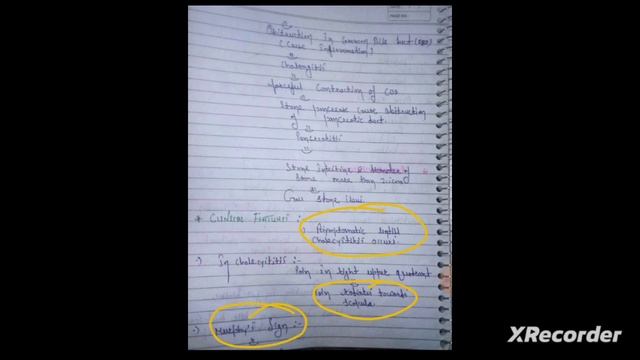 Obstruction In Common Bile Duct (CBD)
(Cause Inflammation)
Cholangitis
forceful Contraction of CBD
Stone pancreas cause obstruction
of pancreatic duct.
Pancreatitis
Stone Intestine
Stone more than
Stone
* CLINICAL FEATURES :-
Asymptomatic until
Cholecystitis occurs
In Cholecystitis :-
Pain in right upper quadrant
Pain radiates towards
Scapula
Murphy's Sign :-
XRecorder